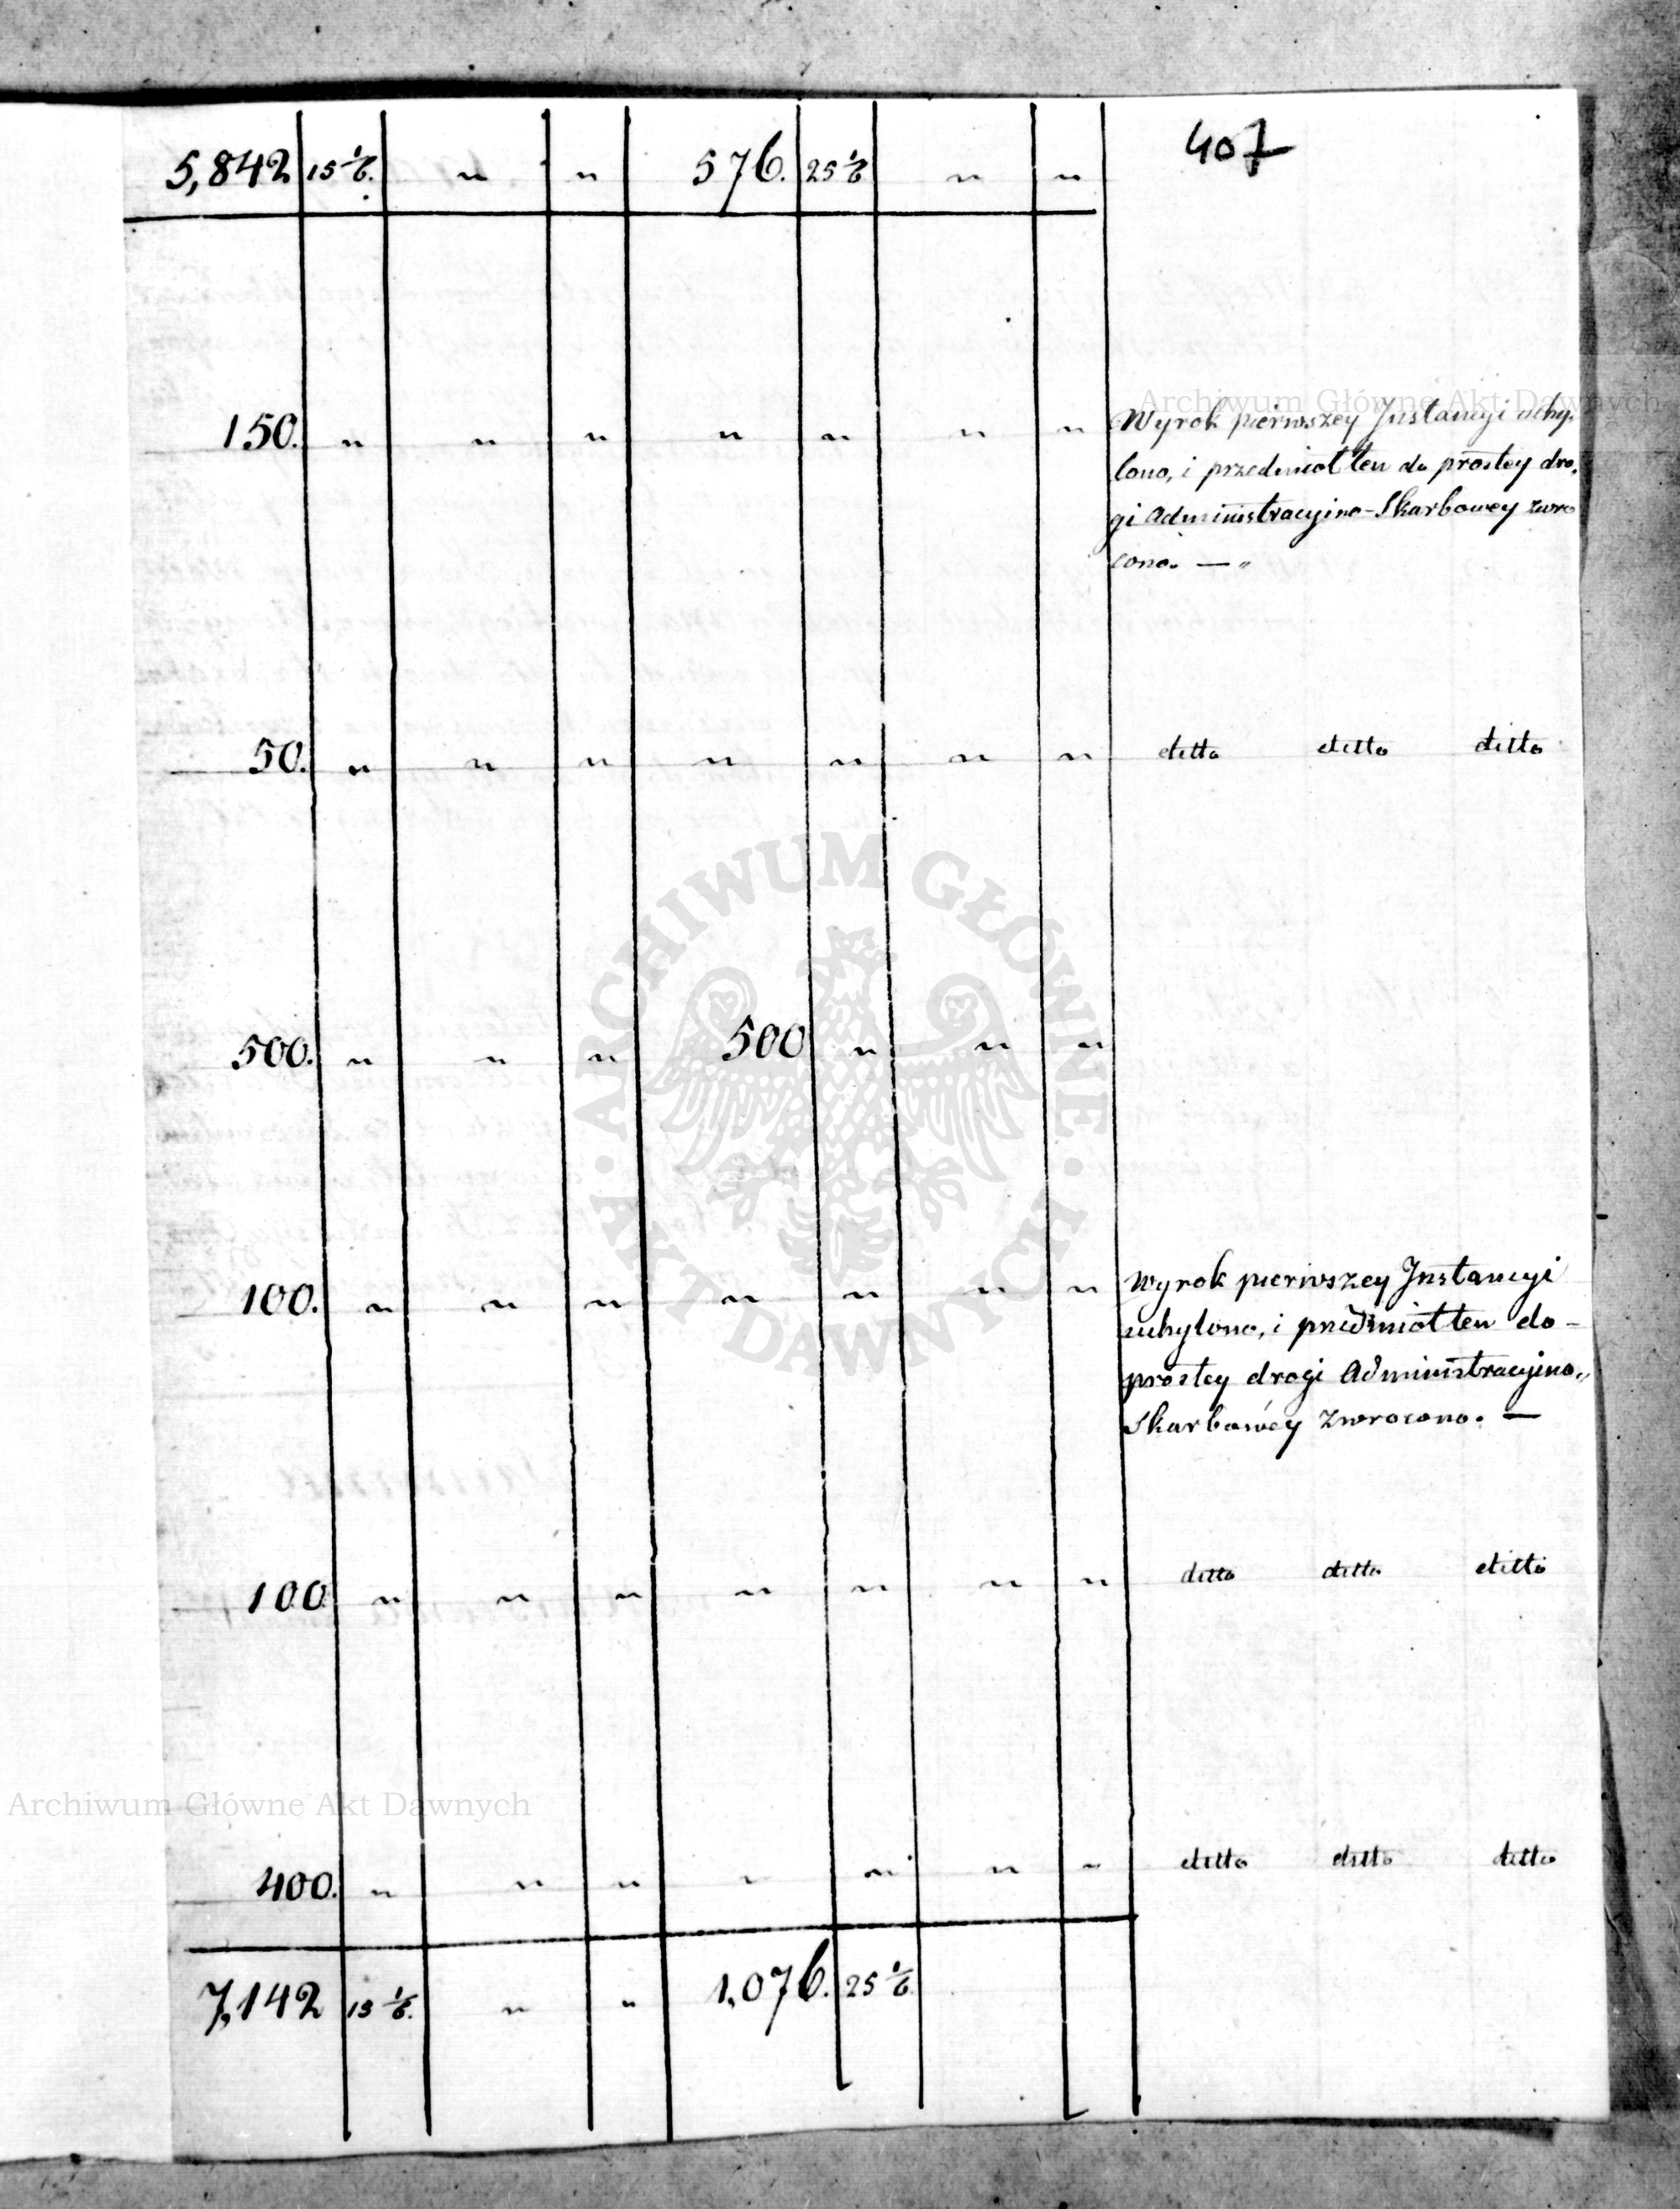 407
5,842 15 1/6. " " 576. 25 1/6 " "
150. " " " " " " "
Wyrok pierwszey Instancyi uchy,
lono, i przedmiot ten do prostey dro,
gi Administracyino-Skarbowey zwro
cono. — "
50. " " " " " " " ditto ditto ditto
500. " " " 500 " " "
100. " " " " " " "
Wyrok pierwszey Instancyi
uchylono, i przedmiot ten do-
prostey drogi Administracyino,,
Skarbowey zwrocono. —
100 " " " " " " " ditto ditto ditto
400. " " " " " " " ditto ditto ditto
7,142 15 1/6. " " 1,076. 25 1/6.
Archiwum Główne Akt Dawnych
ARCHIWUM GŁÓWNE
· AKT DAWNYCH ·
Archiwum Główne Akt Dawnych